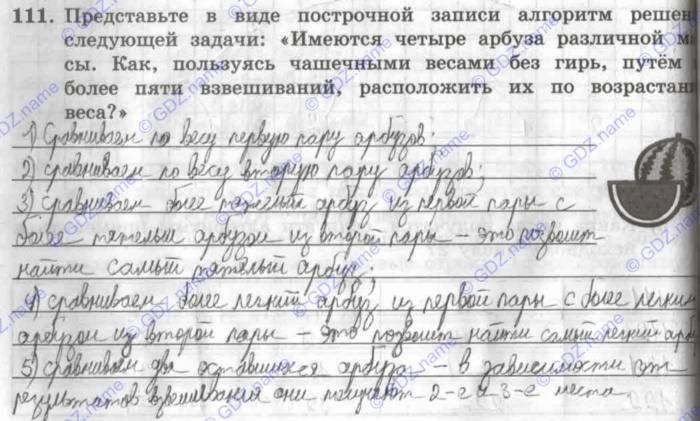 111. Представьте в виде построчной записи алгоритм решен
следующей задачи: «Имеются четыре арбуза различной ма
сы. Как, пользуясь чашечными весами без гирь, путём
более пяти взвешиваний, расположить их по возрастан
веса?»
1) Сравниваем по весу первую пару арбузов;
2) сравниваем по весу вторую пару арбузов;
3) сравниваем более тяжелый арбуз из первой пары с
более тяжелым арбузом из второй пары – это позволит
найти самый тяжелый арбуз;
4) сравниваем более легкий арбуз из первой пары с более легким
арбузом из второй пары – это позволит найти самый легкий арб
5) сравниваем два оставшихся арбуза – в зависимости от
результатов взвешивания они получают 2-е и 3-е места.
© GDZ.name